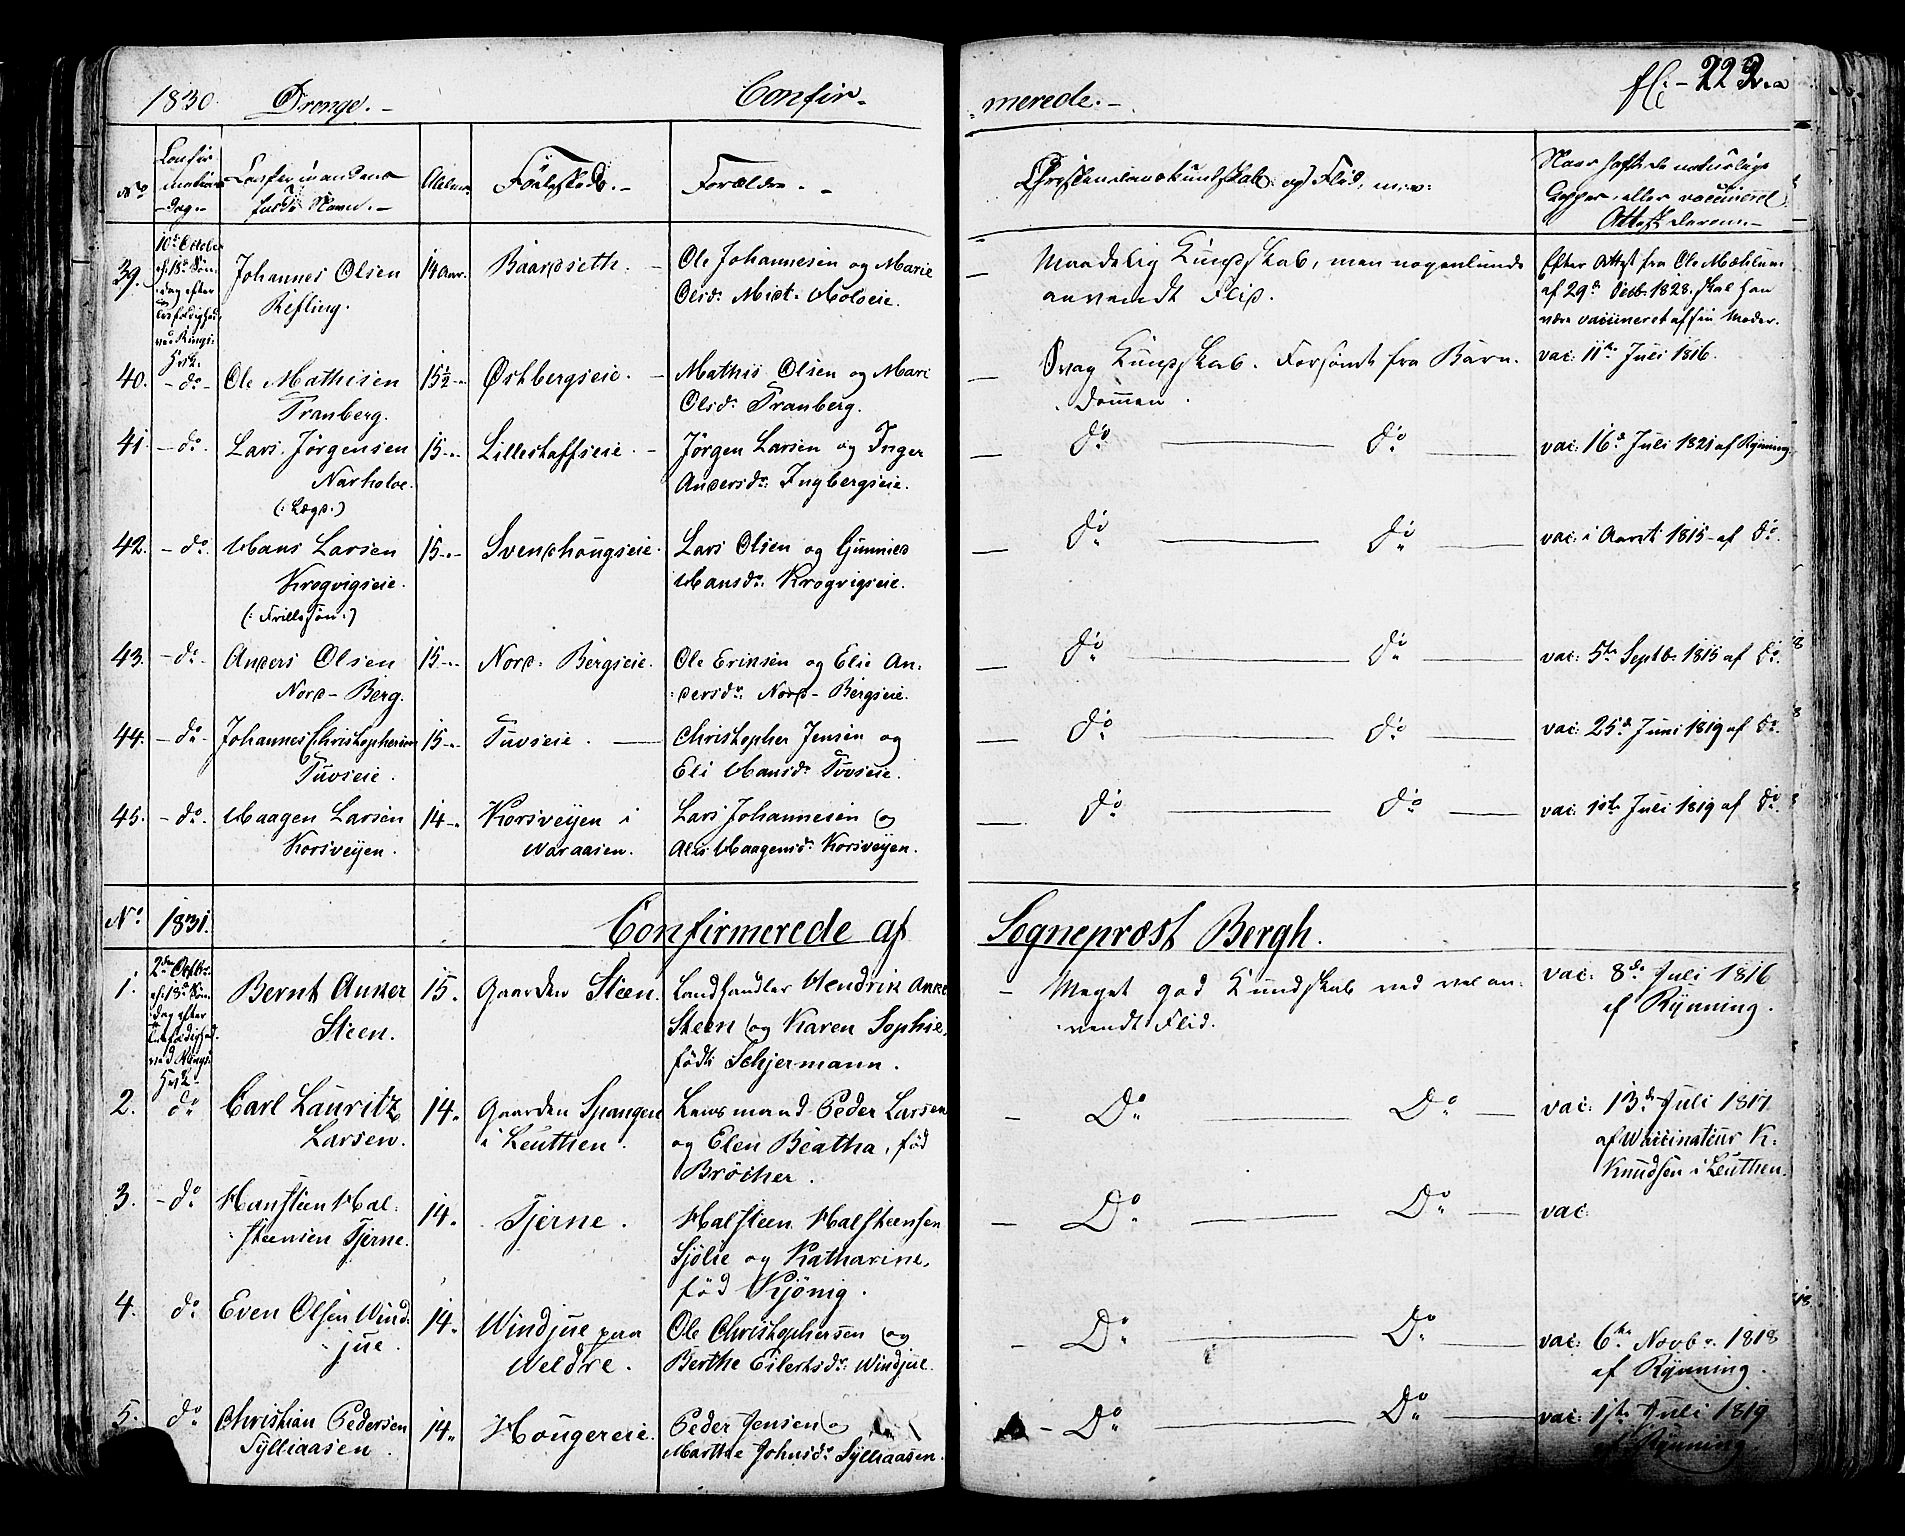 1830. Drenge.- Confir-
merede.-
223
No
Confir
mations
dag.-
Confirmandens
fulde Navn.-
Alder
Fødested.-
Forældre.-
Christendomskundskab og Flid, m.v:
Naar havt de naturlige
Kopper, eller vaccineret
Attest derom.-
39. 10de October
18de Søn-
dag efter
ved Rings:
Krk.
Johannes Olsen
Refling.
14 Aar.
Baardseth.-
Ole Johannesen og Marie
Olsd:
Maadelig Kundskab, men nogenlunde
anvendt Flid.
Efter Attest fra Ole Mæhlum
af 29de Decb. 1828. skal han
være vaccineret af sin Moder.
40. -do- Ole Mathisen
Tranberg.
15½ Østbergseie.-
Mathis Olsen og Mari
Olsdr. Tranberg.
Svag Kundskab. Forsømt fra Barn-
dommen.
vac. 11te Juli 1816.
41. -do. Lars Jørgensen
Narholoe.
(:Lægd.)
15 Lillestaffseie.-
Jørgen Larsen og Inger
Andersdr: Ingbergseie.
do do
vac: 16de Juli 1821 af Rÿnning
42. -do. Hans Larsen
Krogvigseie.
(:Frillesøn:)
15 Svendhougseie.
Lars Olsen og Gunnild
Hansdr: Krogvigseie.
do do
vac: i Aaret 1815 af do.
43. -do- Anders Olsen
Nord-Berg.
15 Nord-Bergseie.
Ole Eriksen og Elie An-
dersdr: Nord-Bergseie.
do do
vac: 5te Septb. 1815 af do.
44. -do- Johannes Christophersen
Tuvseie.
15 Tuvseie.
Christopher Jensen og
Eli Hansdr Tuvseie.
do do
vac: 25de Juni 1819 af do.
45. -do. Haagen Larsen
Korsveijen.
14 Korsveijen i
Waraasen.
Lars Johannesen og
Haagensdr Korsveijen.
do do
vac: 1ste Juli 1819 af do.
No 1831.
Confirmerede af
Sognepræst Bergh.
1. 2den Octbr.
18de Søn-
dag efter
Trefoldighed
ved Rings:
Krk.
Bernt Anker
Steen.
15. Gaarden Steen.
Landhandler Hendrik Anker
Steen og Karen Sophie,
født Schjermann.
- Meget god Kundskab ved vel an-
vendt Flid.
vac: 8de Juli 1816
af Rÿnning.
2. do Carl Lauritz
Larsen.
14. Gaarden Spangen
i Leuthen.
Lensmand Peder Larsen
og Elen Beatha, fød
Bröcher.
Do Do
vac: 13de Juli 1817
af Vaccinateur K.
Knudsen i Leuthen.
3. -do Hansteen Hal-
steensen Tjerne.
14. Tjerne.
Halsteen Halsteensen
Sjölie og Katharine,
fød Kjönig.
Do Do
vac:
4. do Even Olsen Wind-
jue.
14. Windjue paa
Weldre.
Ole Christophersen og
Berthe Eilertsdr. Windjue.
Do Do
vac: 6te Novbr. 1818
af Rÿnning.
5. do Christian Pedersen
Sÿlliaasen.
14. Hougereie.
Peder Jensen og
Marthe Johnsdr Sÿlliaasen.
Do Do
vac: 1ste Juli 1819
af Rÿnning.